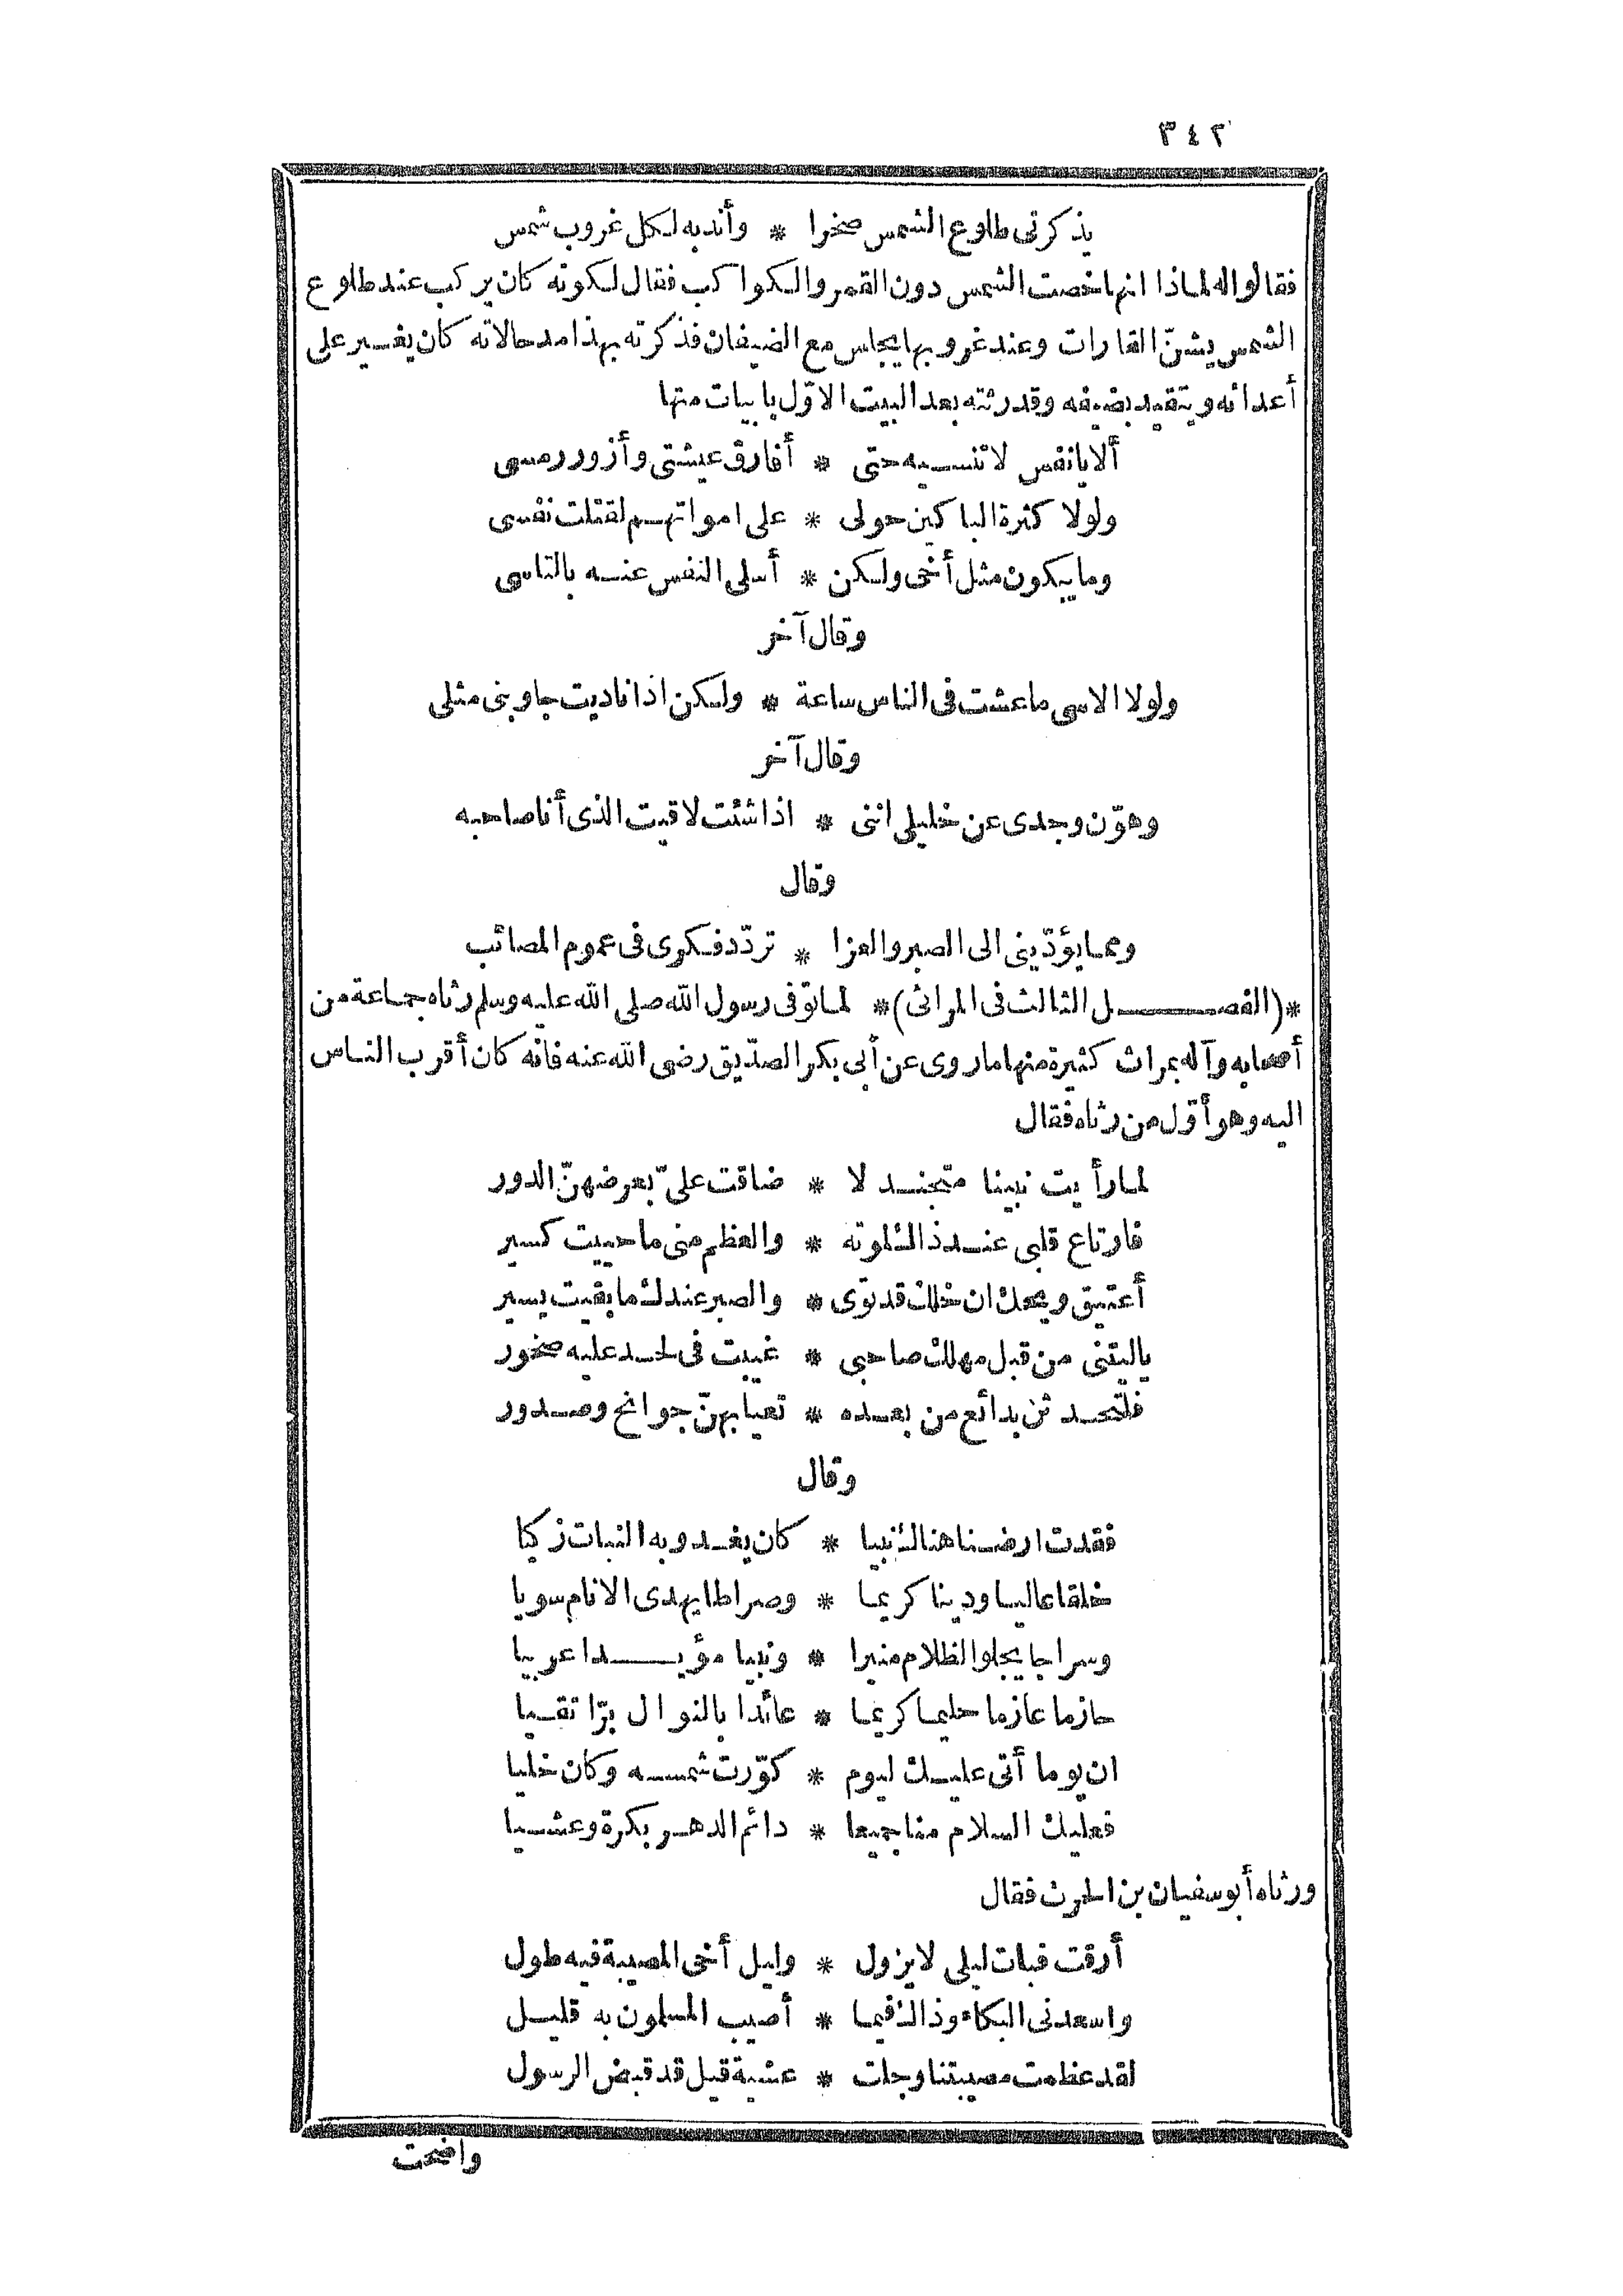 ٣٤٢
يذكرنى طلوع الشمس صخرا * وأندبه لكل غروب شمس
فقالوا له لماذا انها خصت الشمس دون القمر والكواكب فقال لكونه كان يركب عند طلوع
الشمس يشنّ الغارات وعند غروبها يجلس مع الضيفان فذكرته بهذا مدحا لانه كان يغير على
أعدائه ويتقيد بضيفه وقد رثته بعد البيت الاوّل بابيات منها
ألا يا نفس لا تنسيه حتى * أفارق عيشتى وأزور رمسى
ولولا كثرة الباكين حولى * على امواتهم لقتلت نفسى
وما يبكون مثل أخى ولكن * أسلى النفس عنه بالتاسى
وقال آخر
ولولا الاسى ما عشت فى الناس ساعة * ولكن اذا ناديت جاوبنى مثلى
وقال آخر
وهوّن وجدى عن خليلى اننى * اذا شئت لاقيت الذى أنا صاحبه
وقال
ومما يؤدّينى الى الصبر والعزا * تردّد فكرى فى عموم المصائب
*(الفصل الثالث فى المراثى)* لما توفى رسول الله صلى الله عليه وسلم رثاه جماعة من
أصحابه وآله بمراث كثيرة منها ما روى عن أبى بكر الصدّيق رضى الله عنه فانه كان أقرب الناس
اليه وهو أوّل من رثاه فقال
لما رأيت نبينا متجندلا * ضاقت علىّ بعرضهنّ الدور
فارتاع قلبى عند ذاك لموته * والعظم منى ما حييت كسير
أعتيق ويحك ان خلك قد توى * والصبر عندك ما بقيت يسير
ياليتنى من قبل مهلك صاحبى * غيبت فى لحد عليه صخور
فلتحدثن بدائع من بعده * تعيا بهنّ جوانح وصدور
وقال
فقدت ارضنا هناك نبيا * كان يغدو به النبات زكيا
خلقا عاليا ودينا كريما * وصراطا يهدى الانام سويا
وسراجا يجلو الظلام منيرا * ونبيا مؤيدا عربيا
حازما عازما حليما كريما * عائدا بالنوال برّا تقيا
ان يوما أتى عليك ليوم * كوّرت شمسه وكان خليا
فعليك السلام منا جميعا * دائم الدهر بكرة وعشيا
ورثاه أبو سفيان بن الحرث فقال
أرقت فبات ليلى لا يزول * وليل أخى المصيبة فيه طول
واسعدنى البكاء وذاك فيما * أصيب المسلمون به قليل
لقد عظمت مصيبتنا وجلت * عشية قيل قد قبض الرسول
واضحت